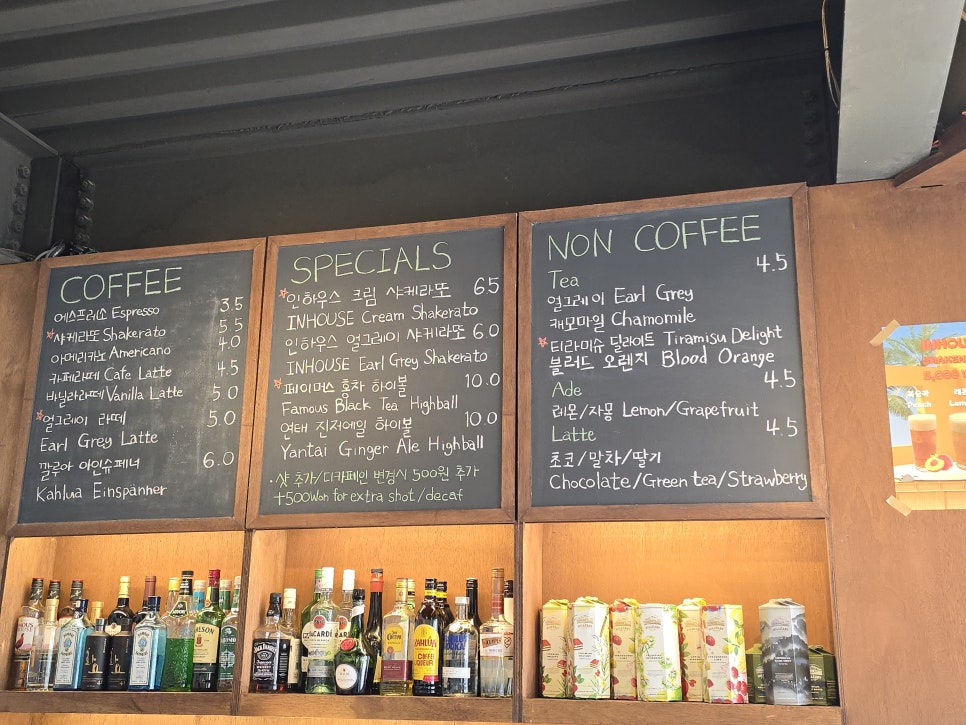 COFFEE
에스프레소 Espresso 3.5
*샤케라또 Shakerato 5.5
아메리카노 Americano 4.0
카페라떼 Cafe Latte 4.5
바닐라라떼 Vanilla Latte 5.0
*얼그레이 라떼 5.0
Earl Grey Latte
깔루아 아인슈페너 6.0
Kahlua Einspänner
SPECIALS
*인하우스 크림 샤케라또 6.5
INHOUSE Cream Shakerato
인하우스 얼그레이 샤케라또 6.0
INHOUSE Earl Grey Shakerato
*페이머스 홍차 하이볼 10.0
Famous Black Tea Highball
연태 진저에일 하이볼 10.0
Yantai Ginger Ale Highball
·샷 추가/디카페인 변경시 500원 추가
+500won for extra shot/decaf
NON COFFEE
Tea 4.5
얼그레이 Earl Grey
캐모마일 Chamomile
*티라미슈 딜라이트 Tiramisu Delight
블러드 오렌지 Blood Orange
Ade 4.5
레몬/자몽 Lemon/Grapefruit
Latte 4.5
초코/말차/딸기
Chocolate/Green tea/Strawberry
INHOU
복숭아
Peach
레몬
Lem
JACK DANIEL'S
BACARDI
Jose Cuervo
KAHLUA
COFFEE
LIQUEUR
VODKA